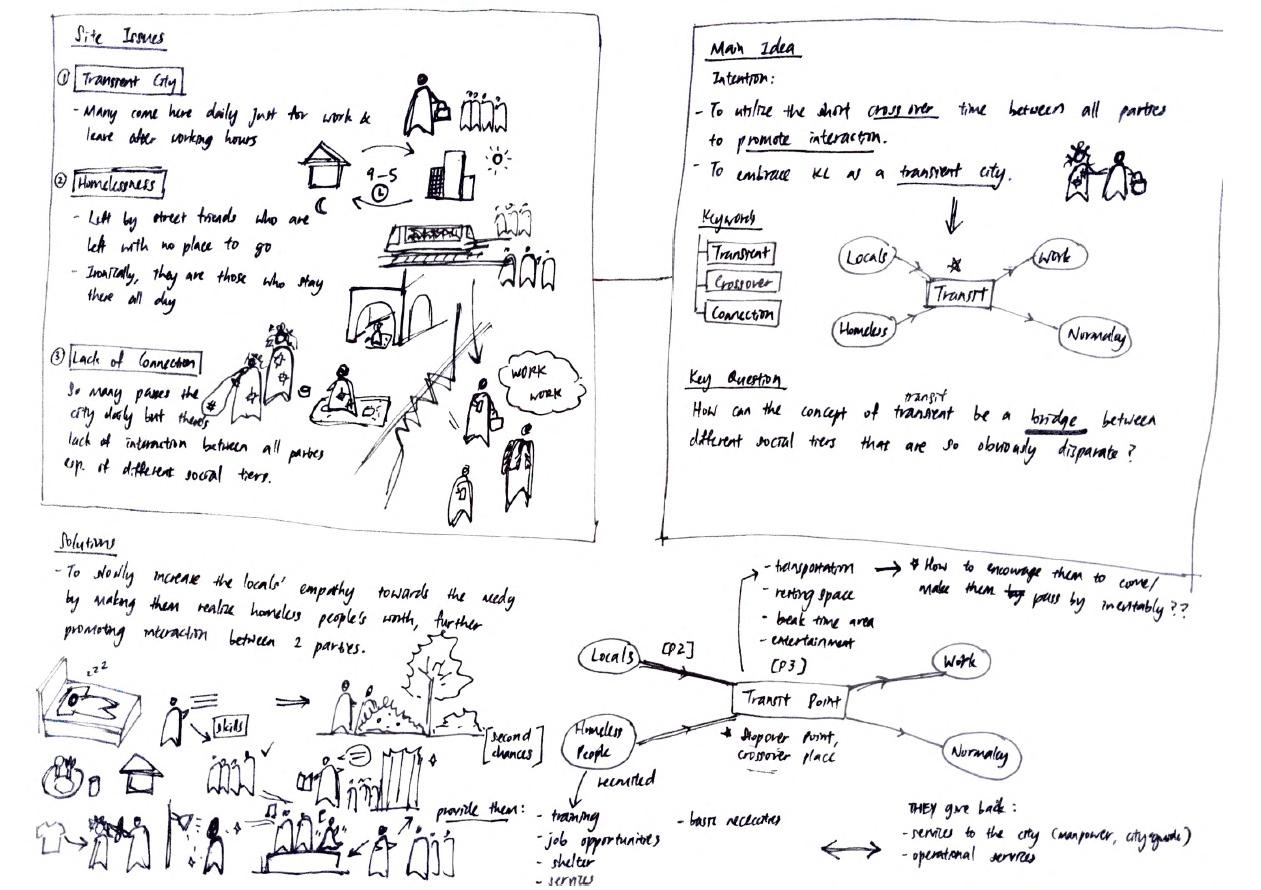 Site Issues
① Transient City
- Many come here daily just for work &
leave after working hours
9-5
② Homelessness
- Left by street friends who are
left with no place to go
- Ironically, they are those who stay
there all day
③ Lack of Connection
So many passes the
city daily but there's
lack of interaction between all parties
esp. of different social tiers.
WORK
WORK
Main Idea
Intention:
- To utilize the short cross over time between all parties
to promote interaction.
- To embrace KL as a transient city.
Keywords
Transient
Crossover
Connection
Locals
Work
Transit
Homeless
Normalcy
Key Question
transit
How can the concept of transient be a bridge between
different social tiers that are so obviously disparate?
Solutions
- To slowly increase the locals' empathy towards the needy
by making them realize homeless people's worth, further
promoting interaction between 2 parties.
zzz
skills
[second
chances]
- transportation → * How to encourage them to come/
make them pass by inevitably??
- resting space
- beak time area
- entertainment
Locals
[P2]
[P3]
Work
Transit Point
Homeless
People
* Stopover point,
crossover place
Normalcy
recruited
provide them:
- training
- job opportunities
- shelter
- services
- basic necessities
THEY give back:
- services to the city (manpower, city guide)
- operational services